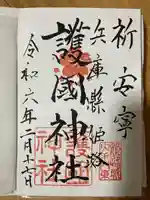 祈安寧
兵庫縣姫路
護國神社
令和六年二月十七日